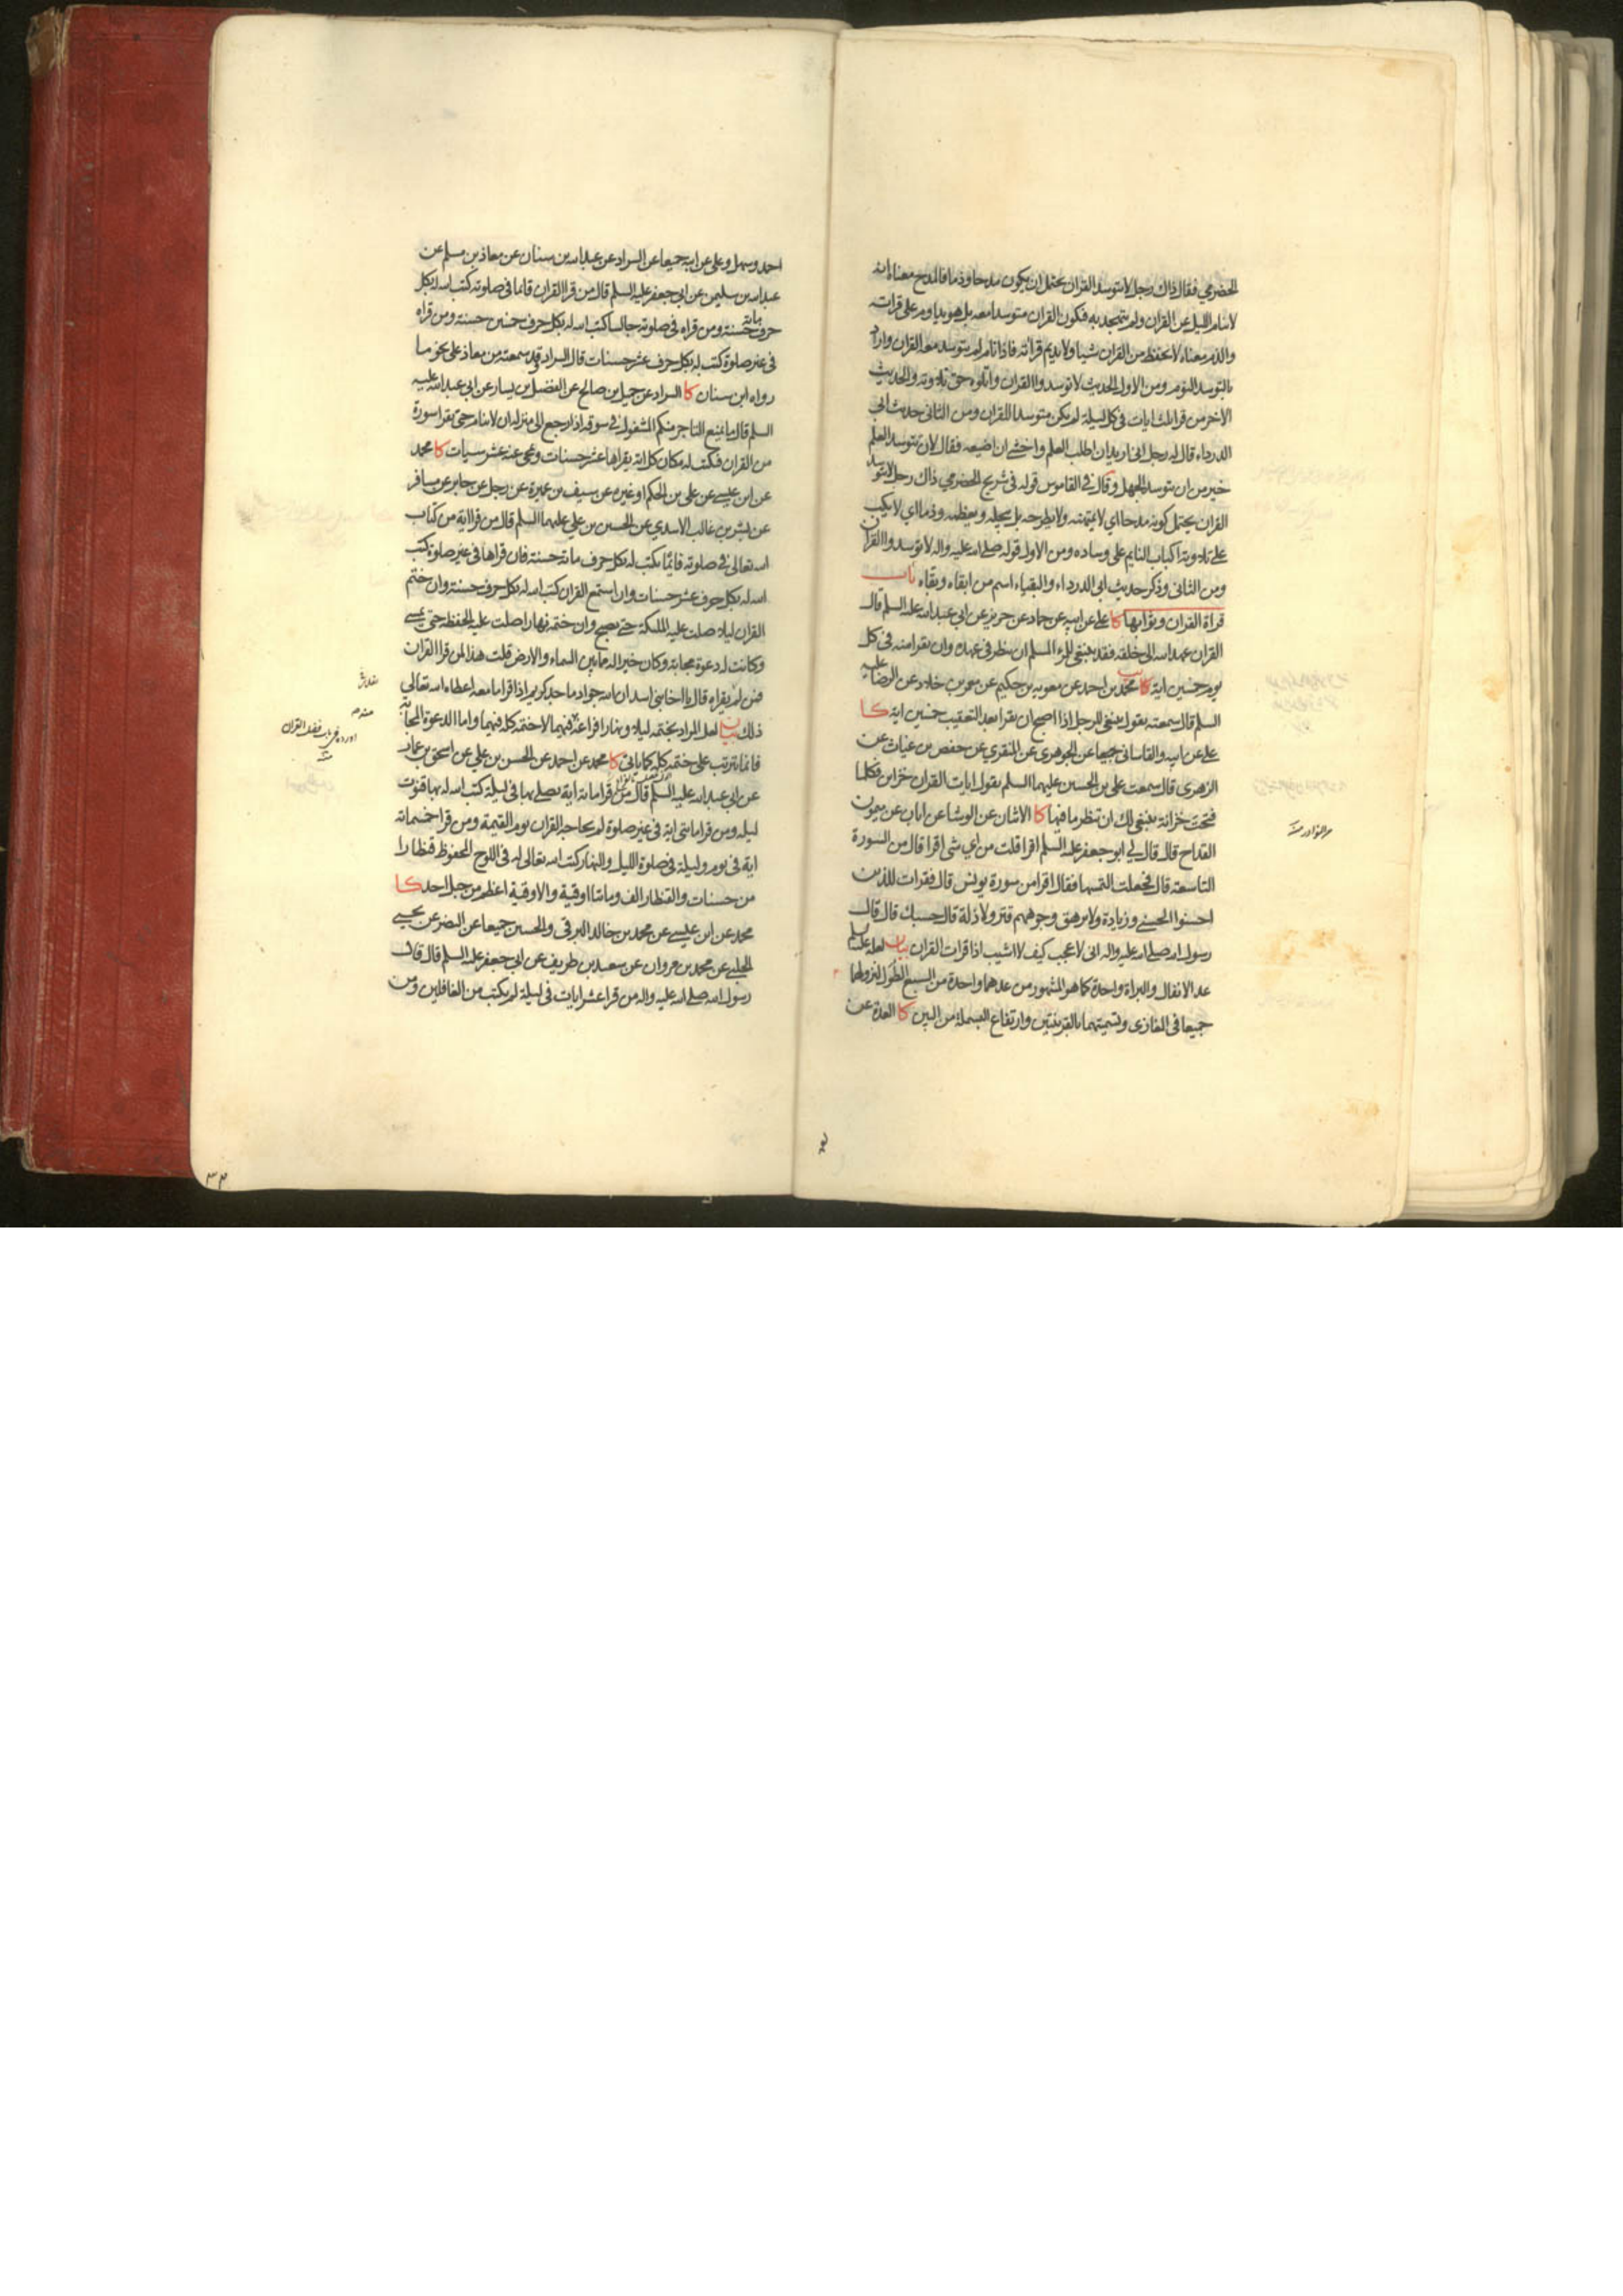 الحضرمي فقال ذاك رجل لا يتوسد القران يحتمل ان يكون مدحا وذما فالمدح معناه انه
لا ينام الليل عن القران ولم يتهجد به فيكون القران متوسدا معه بل هو يداوم على قراءته
والذم معناه لا يحفظ من القران شيئا ولا يديم قرائته فاذا نام لم يتوسد معه القران واراد
بالتوسد النوم ومن الاول الحديث لا توسدوا القران واتلوه حق تلاوته والحديث
الاخر من قرا ثلث ايات في كل ليلة لم يكن متوسدا للقران ومن الثاني حديث ابي
الدرداء قال له رجل اني اريد ان اطلب العلم واخشى ان اضيعه فقال لان تتوسد العلم
خير من ان تتوسد الجهل وقال في القاموس قوله في شريح الحضرمي ذاك رجل لا يتوسد
القران يحتمل كونه مدحا اي لا يمتهنه ولا يطرحه بل يجله ويعظمه وذما اي لا يكب
على تلاوته اكباب النايم على وساده ومن الاول قوله صلى الله عليه واله لا توسدوا القران
ومن الثاني وذكر حديث ابي الدرداء والبقياء اسم من ابقاه وبقاه باب
قراة القران وثوابها كا علي عن ابيه عن حماد عن حريز عن ابي عبد الله عليه السلم قال
القران عهد الله الى خلقه فقد ينبغي للمرء المسلم ان ينظر في عهده وان يقرا منه في كل
يوم خمسين اية يب محمد بن احمد عن معوية بن حكيم عن معمر بن خلاد عن الرضا عليه
السلم قال سمعته يقول ينبغي للرجل اذا اصبح ان يقرا بعد التعقيب خمسين اية كا
علي عن ابيه والقاساني جميعا عن الجوهري عن المنقري عن حفص بن غياث عن
الزهري قال سمعت علي بن الحسين عليهما السلم يقول ايات القران خزاين فكلما
فتحت خزانة ينبغي لك ان تنظر ما فيها كا الاثنان عن الوشا عن ابان عن ميمون
القداح قال قال لي ابو جعفر عليه السلم اقرا قلت من اي شي اقرا قال من السورة
التاسعة قال فجعلت التمسها فقال اقرا من سورة يونس قال فقرات للذين
احسنوا الحسنى وزيادة ولا يرهق وجوههم قتر ولا ذلة قال حسبك قال قال
رسول الله صلى الله عليه واله اني لاعجب كيف لا اشيب اذا قرات القران بيان لعله عليه السلم
عد الانفال والبراة واحدة كما هو المشهور من عدهما واحدة من السبع الطول لنزولهما
جميعا في المغازي وتسميتهما بالقرينتين وارتفاع البسملة من البين كا العدة عن
من النوادر منه
احمد وسهل وعلي عن ابيه جميعا عن السراد عن عبد الله بن سنان عن معاذ بن مسلم عن
عبد الله بن سليمن عن ابي جعفر عليه السلم قال من قرا القران قائما في صلوته كتب الله له بكل
حرف مائة حسنة ومن قراه في صلوته جالسا كتب الله له بكل حرف خمسين حسنة ومن قراه
في غير صلوة كتب له بكل حرف عشر حسنات قال السراد وقد سمعته من معاذ على نحو ما
رواه ابن سنان كا السراد عن جميل بن صالح عن الفضيل بن يسار عن ابي عبد الله عليه
السلم قال ما يمنع التاجر منكم المشغول في سوقه اذا رجع الى منزله ان لا ينام حتى يقرا سورة
من القران فيكتب له مكان كل اية يقراها عشر حسنات ويمحى عنه عشر سيئات كا محمد
عن ابن عيسى عن علي بن الحكم او غيره عن سيف بن عميرة عن رجل عن جابر عن مسافر
عن بشر بن غالب الاسدي عن الحسين بن علي عليهما السلم قال من قرا اية من كتاب
الله تعالى في صلوته قائما يكتب له بكل حرف مائة حسنة فان قراها في غير صلوة كتب
الله له بكل حرف عشر حسنات وان استمع القران كتب الله له بكل حرف حسنة وان ختم
القران ليلا صلت عليه الملئكة حتى يصبح وان ختمه نهارا صلت عليه الحفظة حتى يمسي
وكانت له دعوة مجابة وكان خيرا له مما بين السماء والارض قلت هذا لمن قرا القران
فمن لم يقراه قال يا اخا بني اسد ان الله جواد ماجد كريم اذا قرا ما معه اعطاه الله تعالى
ذلك بيان لعل المراد بختمه ليلا ونهارا فراغه فيهما لا ختمه كله فيهما واما الدعوة المجابة
فانما يترتب على ختمه كله كما ياتي كا محمد عن احمد عن الحسن بن علي عن اسحق بن عمار
عن ابي عبد الله عليه السلم قال من قرا مائة اية يصلي بها في ليلة كتب الله له بها قنوت
ليله ومن قرا مائتي اية في غير صلوة لم يحاجه القران يوم القيمة ومن قرا خمسمائة
اية في يوم وليلة في صلوة الليل والنهار كتب الله تعالى له في اللوح المحفوظ قنطارا
من حسنات والقنطار الف ومائتا اوقية والاوقية اعظم من جبل احد كا
محمد عن ابن عيسى عن محمد بن خالد البرقي والحسين جميعا عن النضر عن يحيى
الحلبي عن محمد بن مروان عن سعد بن طريف عن ابي جعفر عليه السلم قال قال
رسول الله صلى الله عليه واله من قرا عشر ايات في ليلة لم يكتب من الغافلين ومن
اورده في باب فضل القران